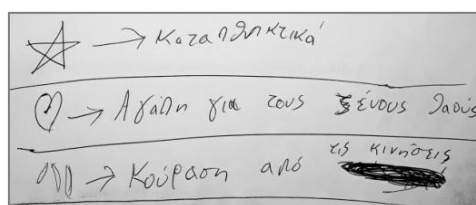 → Καταπληκτικά
→ Αγάπη για τους ξένους λαούς
→ Κούραση από τις κινήσεις